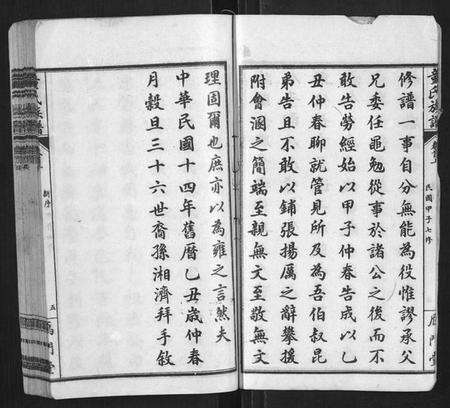 修譜一事自分無能為役惟謬承父
兄委任黽勉從事於諸公之後而不
敢告勞經始以甲子仲春告成以乙
丑仲春聊就管見所及為吾伯叔昆
弟告且不敢以鋪張揚厲之辭攀援
附會溷之簡端至親無文至敬無文
理固爾也庶亦以為雍之言然夫
中華民國十四年舊曆乙丑歲仲春
月穀旦三十六世裔孫湘濟拜手敘
氏族譜
民國甲子七修
門堂
序
五
門堂